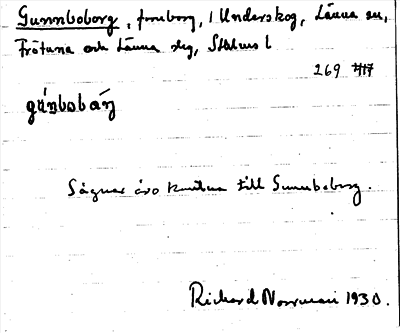 Gunnboborg, fornborg, i Underskog, Länna sn,
Frötuna och Länna skg, Sthlms l
269 417
Sägner äro knutna till Gunnboborg.
Richard Norrman 1930.